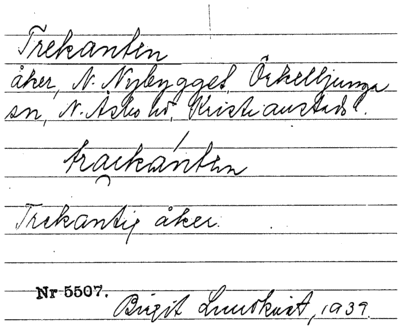 Trekanten
åker, N. Nybygget, Örkelljunga
sn, N. Åsbo hd, Kristianstads l.
traekánten
Trekantig åker.
Nr 5507.
Birgit Lundkvist, 1939.